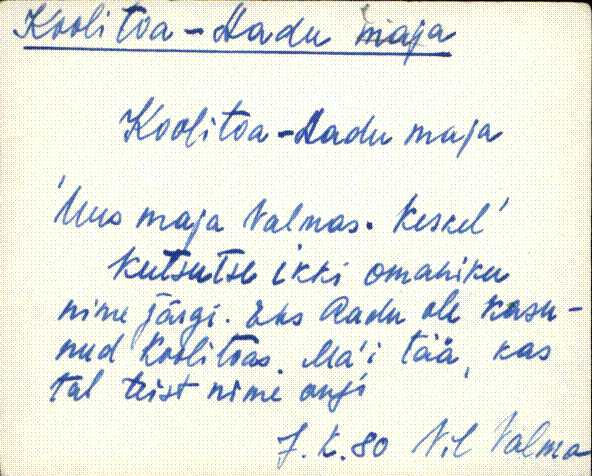 Koolitoa-Aadu maja
Koolitoa-Aadu maja
'Uus maja Valmas. Keskel'
Kutsutse ikki omaniku
nime järgi. Eks Aadu ole kasu-
nud Koolitoas. Ma'i tää, kas
tal teist nime ongi
J. K. 80 Vil Valma